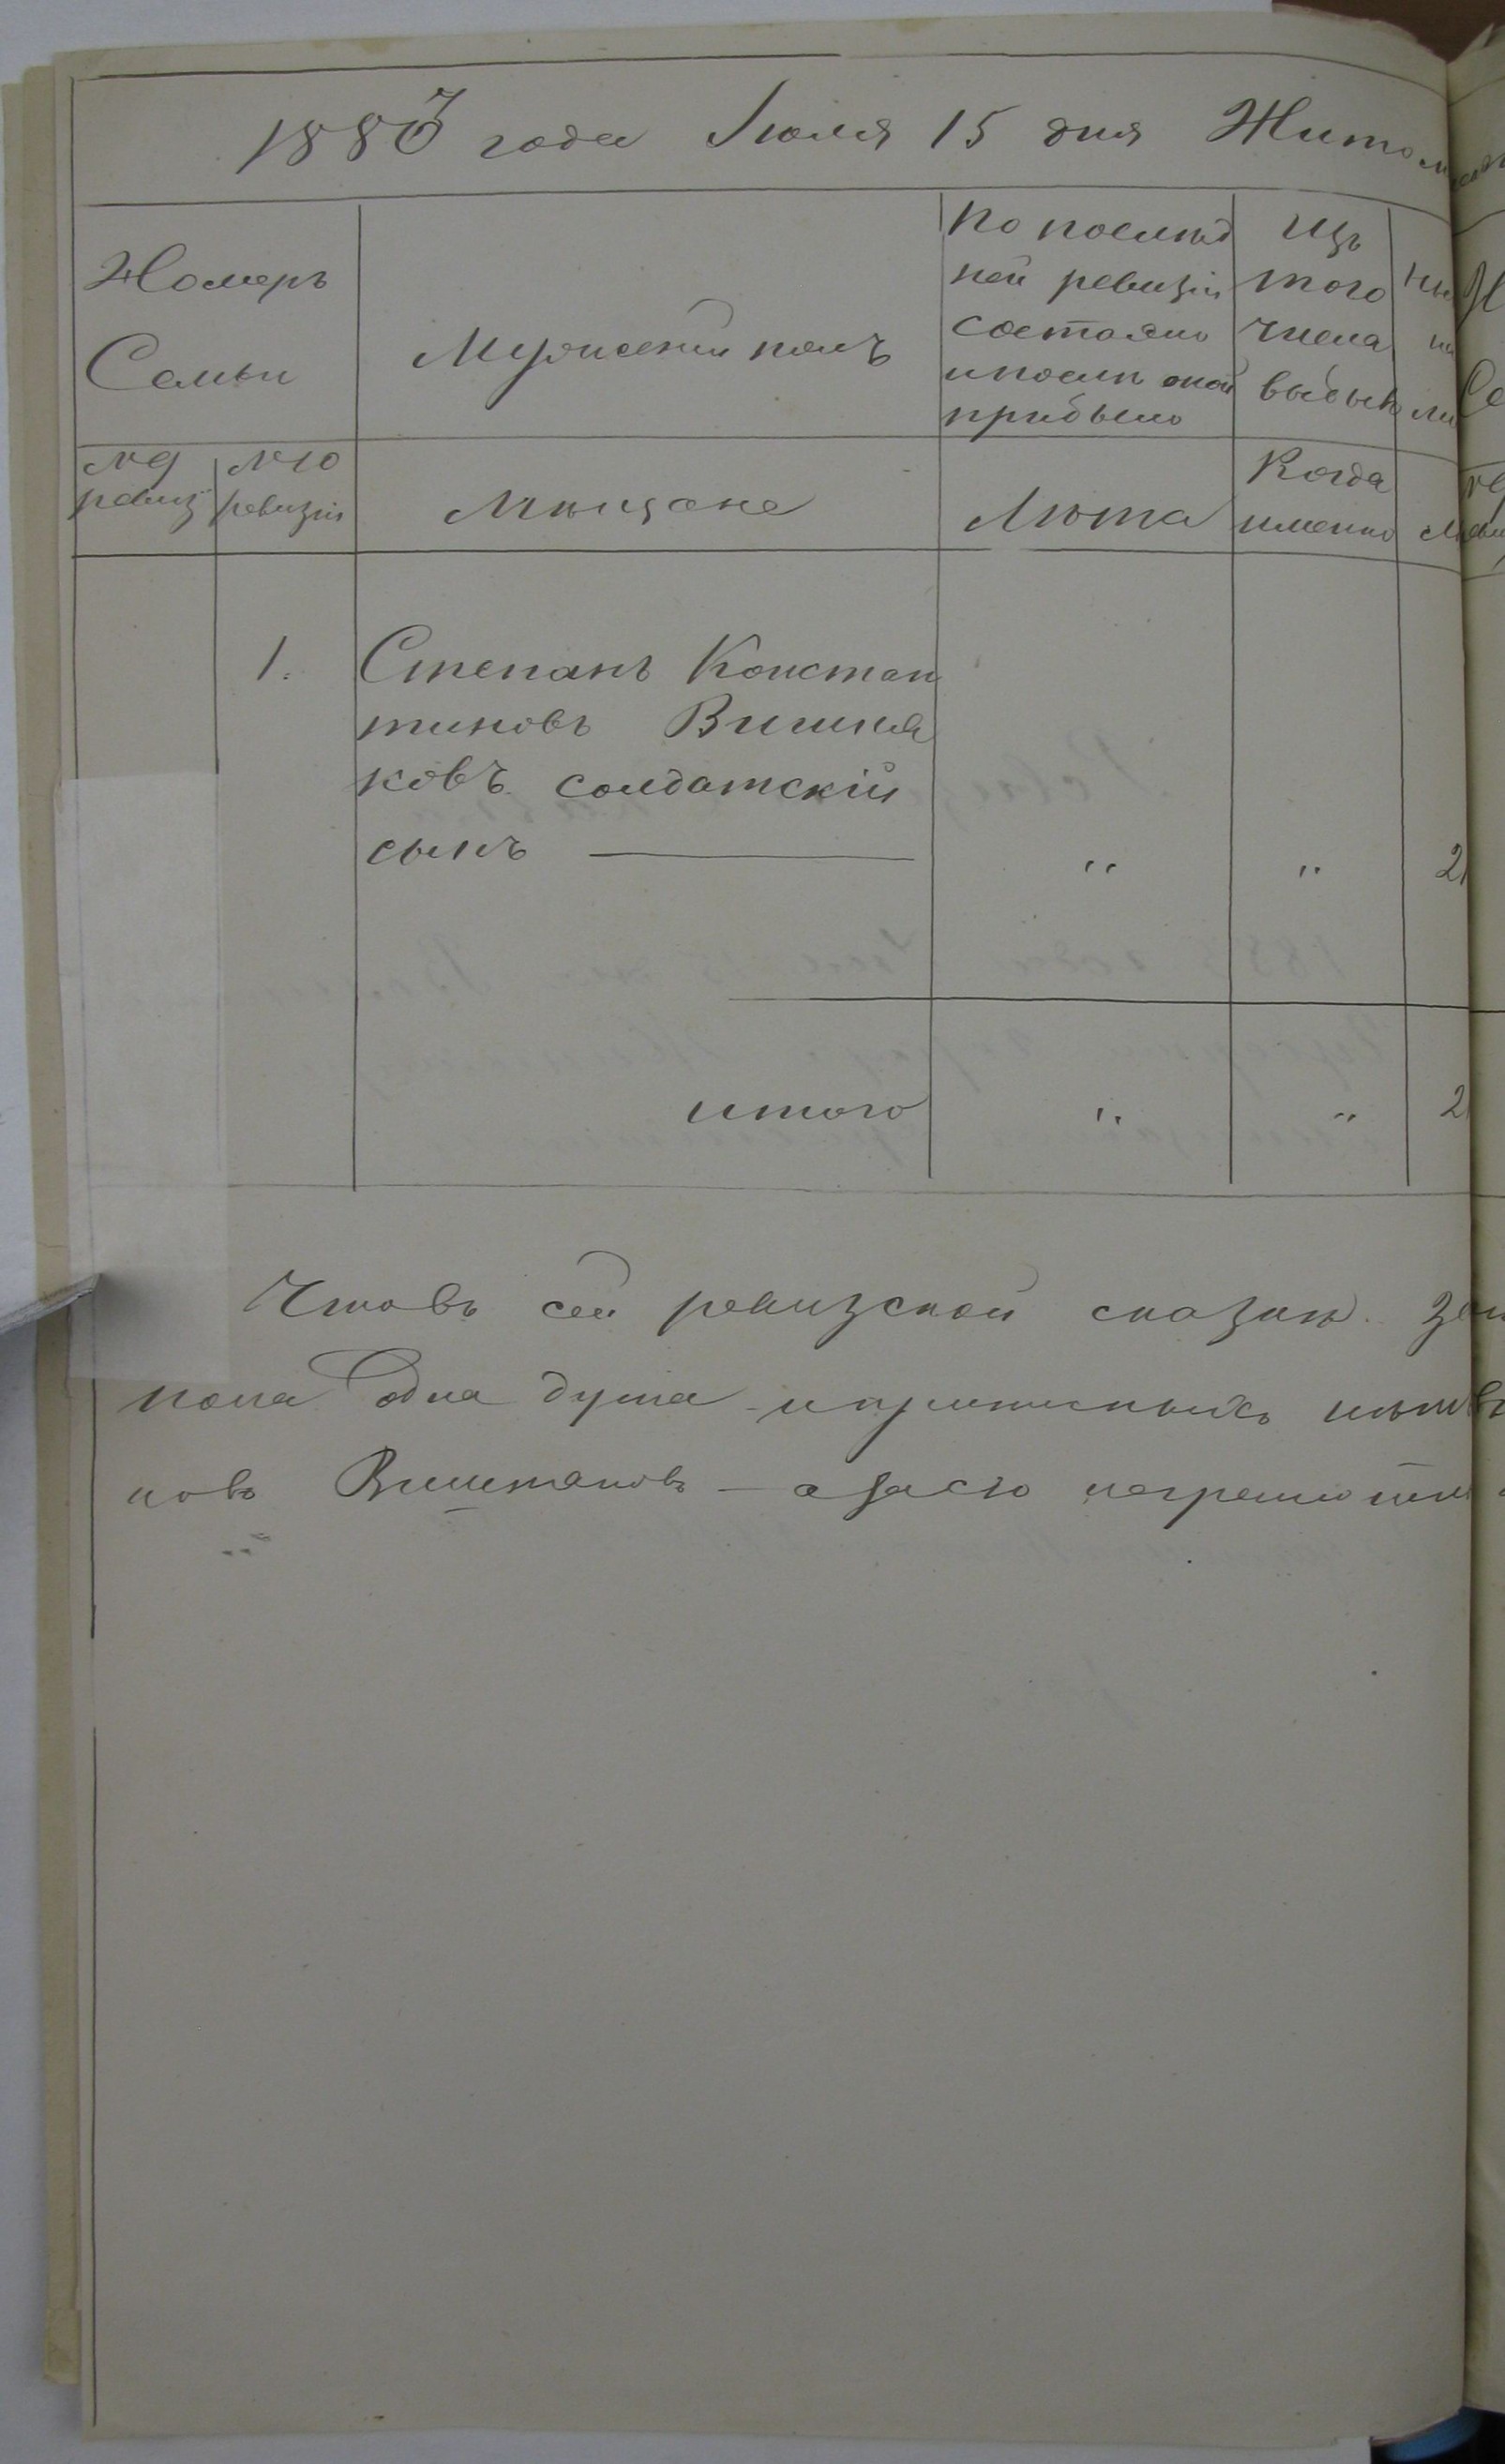 1887 года Іюля 15 дня Житом
Номеръ
Семьи
Мужеский полъ
По послѣд
ней ревизіи
состояло
и послѣ оной
прибыло
Изъ
того
числа
выбыло
№ 9
ревиз
№ 10
ревизіи
Мѣщане
Лѣта
Когда
именно
1. Степанъ Констан
тиновъ Вишня
ковъ солдатскій
сынъ — " " 21
итого " " 21
Что въ сей ревизской сказкѣ
пола одна душа и
новъ Вишняковъ —